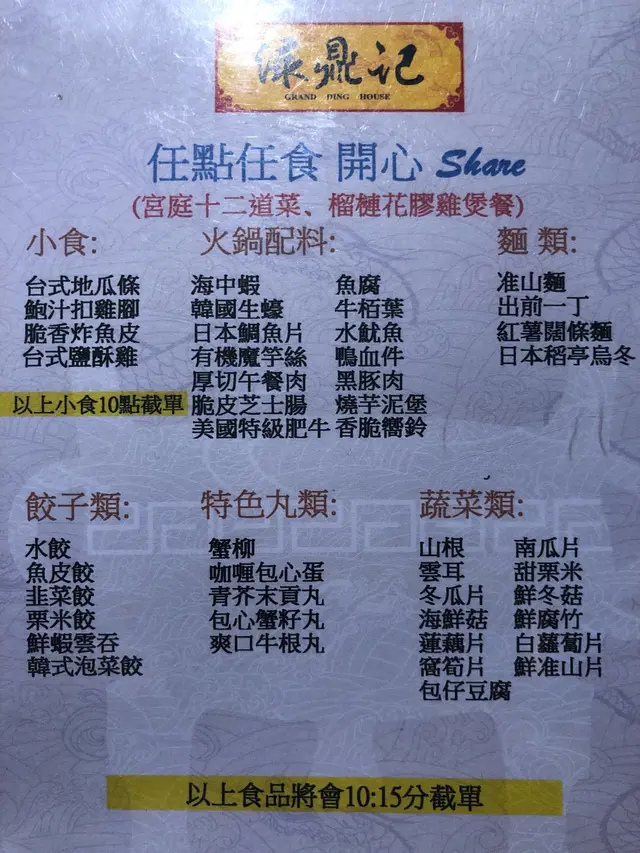 源鼎记
GRAND DING HOUSE
任點任食 開心 Share
(宮庭十二道菜、榴槤花膠雞煲餐)
小食:
台式地瓜條
鮑汁扣雞腳
脆香炸魚皮
台式鹽酥雞
以上小食10點截單
火鍋配料:
海中蝦 魚腐
韓國生蠔 牛栢葉
日本鯛魚片 水魷魚
有機魔竽絲 鴨血件
厚切午餐肉 黑豚肉
脆皮芝士腸 燒芋泥堡
美國特級肥牛 香脆嚮鈴
麵 類:
准山麵
出前一丁
紅薯闊條麵
日本稻亭烏冬
餃子類:
水餃
魚皮餃
韭菜餃
栗米餃
鮮蝦雲吞
韓式泡菜餃
特色丸類:
蟹柳
咖喱包心蛋
青芥末貢丸
包心蟹籽丸
爽口牛根丸
蔬菜類:
山根 南瓜片
雲耳 甜栗米
冬瓜片 鮮冬菇
海鮮菇 鮮腐竹
蓮藕片 白蘿蔔片
窩筍片 鮮准山片
包仔豆腐
以上食品將會10:15分截單